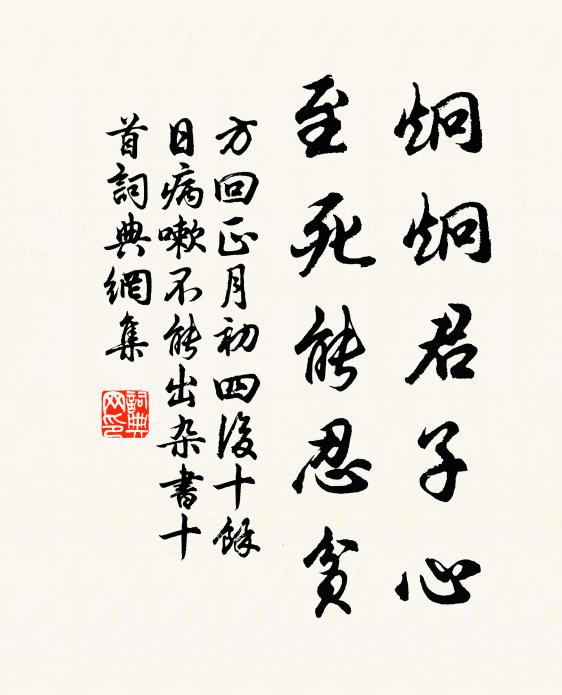 炯炯君子心
至死能忍貧
方回正月初四後十餘
日病嗽不能出杂書十
首詞典網集
詞典网印